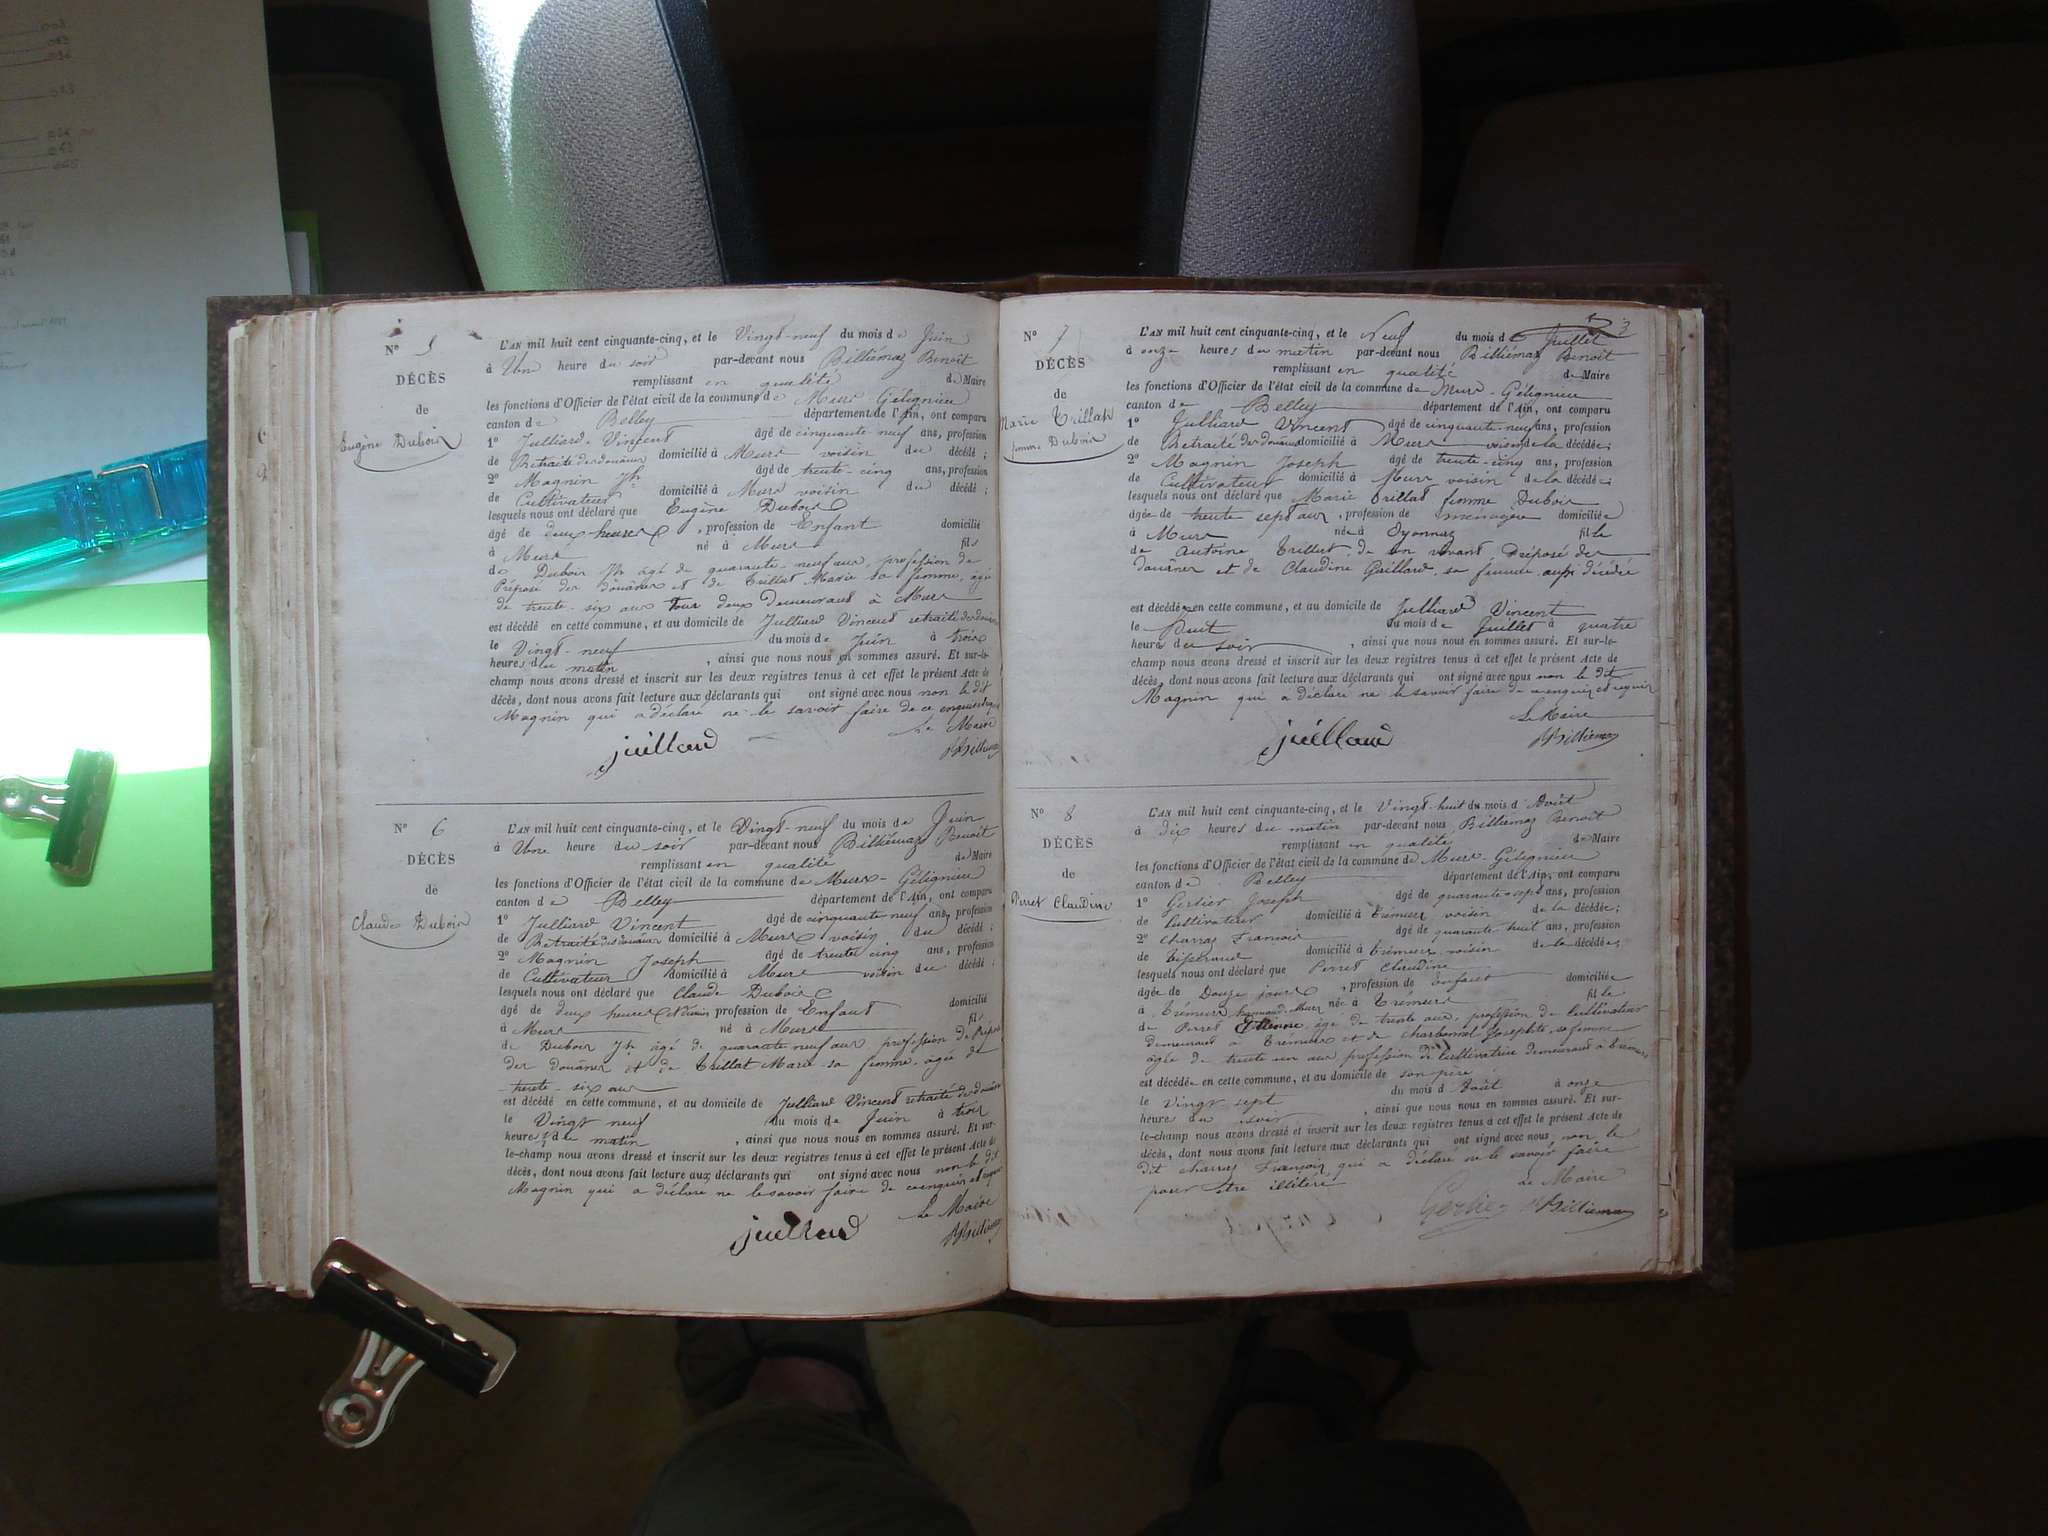 Nº 5
DÉCÈS
de
Eugène Dubois
L'AN mil huit cent cinquante-cinq, et le Vingt-neuf du mois de Juin
à Une heure du soir par-devant nous Billiémaz Benoit
remplissant en qualité de Maire
les fonctions d'Officier de l'état civil de la commune de Murs Gélignieu
canton de Belley département de l'Ain, ont comparu
1º Julliard Vincent âgé de cinquante-neuf ans, profession
de Retraité des douanes domicilié à Murs voisin du décédé ;
2º Magnin Jh âgé de trente-cinq ans, profession
de Cultivateur domicilié à Murs voisin du décédé ;
lesquels nous ont déclaré que Eugène Dubois
âgé de deux heures , profession de Enfant domicilié
à Murs né à Murs fils
de Dubois Jh âgé de quarante-neuf ans, profession de
Préposé des douanes et de Trillat Marie sa femme, âgée
de trente-six ans tous deux Demeurant à Murs
est décédé en cette commune, et au domicile de Julliard Vincent retraité des douanes
le Vingt-neuf du mois de Juin à trois
heures du matin , ainsi que nous nous en sommes assuré. Et sur-le-
champ nous avons dressé et inscrit sur les deux registres tenus à cet effet le présent Acte de
décès, dont nous avons fait lecture aux déclarants qui ont signé avec nous non le dit
Magnin qui a déclaré ne le savoir faire de ce enquis et requis
Le Maire
juilland
Billiémaz
Nº 6
DÉCÈS
de
Claude Dubois
L'AN mil huit cent cinquante-cinq, et le Vingt-neuf du mois de Juin
à Une heure du soir par-devant nous Billiémaz Benoit
remplissant en qualité de Maire
les fonctions d'Officier de l'état civil de la commune de Murs-Gélignieu
canton de Belley département de l'Ain, ont comparu
1º Julliard Vincent âgé de cinquante neuf ans, profession
de Retraité des douanes domicilié à Murs voisin du décédé ;
2º Magnin Joseph âgé de trente cinq ans, profession
de Cultivateur domicilié à Murs voisin du décédé ;
lesquels nous ont déclaré que Claude Dubois
âgé de deux heures et demies profession de Enfant domicilié
à Murs né à Murs fils
de Dubois Jh âgé de quarante neuf ans, profession de Préposé
des douanes et de Trillat Marie sa femme, âgée de
trente-six ans
est décédé en cette commune, et au domicile de Julliard Vincent retraité des douanes
le Vingt neuf du mois de Juin à trois
heures ½ du matin , ainsi que nous nous en sommes assuré. Et sur-
le-champ nous avons dressé et inscrit sur les deux registres tenus à cet effet le présent Acte de
décès, dont nous avons fait lecture aux déclarants qui ont signé avec nous non le dit
Magnin qui a déclaré ne le savoir faire de ce enquis et requis
Le Maire
juilland
Billiémaz
3
Nº 7
DÉCÈS
de
Marie Trillat
femme Dubois
L'AN mil huit cent cinquante-cinq, et le Neuf du mois de Juillet
à onze heures du matin par-devant nous Billiémaz Benoit
remplissant en qualité de Maire
les fonctions d'Officier de l'état civil de la commune de Murs-Gélignieu
canton de Belley département de l'Ain, ont comparu
1º Julliard Vincent âgé de cinquante-neuf ans, profession
de Retraité des douanes domicilié à Murs voisin de la décédée ;
2º Magnin Joseph âgé de trente-cinq ans, profession
de Cultivateur domicilié à Murs voisin de la décédée ;
lesquels nous ont déclaré que Marie Trillat femme Dubois
âgée de trente sept ans , profession de ménagère domiciliée
à Murs née à Oyonnaz fille
de Antoine Trillat, de son vivant Préposé des
douanes et de Claudine Gaillard, sa femme aussi décédée
est décédée en cette commune, et au domicile de Julliard Vincent
le Huit du mois de Juillet à quatre
heures du soir , ainsi que nous nous en sommes assuré. Et sur-le-
champ nous avons dressé et inscrit sur les deux registres tenus à cet effet le présent Acte de
décès, dont nous avons fait lecture aux déclarants qui ont signé avec nous non le dit
Magnin qui a déclaré ne le savoir faire de ce enquis et requis
Le Maire
juilland
Billiémaz
Nº 8
DÉCÈS
de
Perret Claudine
L'AN mil huit cent cinquante-cinq, et le Vingt-huit du mois d'Août
à dix heures du matin par-devant nous Billiémaz Benoit
remplissant en qualité de Maire
les fonctions d'Officier de l'état civil de la commune de Murs-Gélignieu
canton de Belley département de l'Ain, ont comparu
1º Gertier Joseph âgé de quarante sept ans, profession
de Cultivateur domicilié à Trémurs voisin de la décédée ;
2º Charras François âgé de quarante huit ans, profession
de tisserand domicilié à Trémurs voisin de la décédée ;
lesquels nous ont déclaré que Perret Claudine
âgée de Douze jours , profession de enfant domiciliée
à Trémurs née à Trémurs fille
de Perret Etienne, âgé de trente ans, profession de Cultivateur
demeurant à Trémurs et de Charbonnet Josephte, sa femme
âgée de trente un ans profession de Cultivatrice demeurant à Trémurs
est décédée en cette commune, et au domicile de son père
le vingt-sept du mois d'Août à onze
heure du soir , ainsi que nous nous en sommes assuré. Et sur-
le-champ nous avons dressé et inscrit sur les deux registres tenus à cet effet le présent Acte de
décès, dont nous avons fait lecture aux déclarants qui ont signé avec nous non le
dit Charras François qui a déclaré ne le savoir faire
pour être illiteré
Le Maire
Gertier
Billiémaz